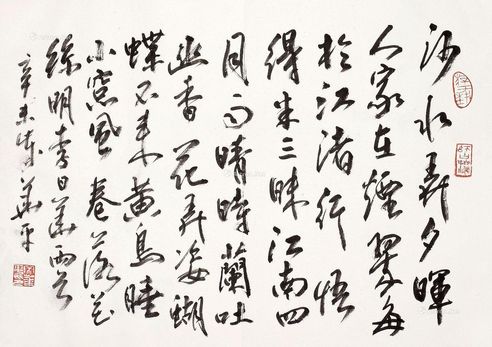 沙水弄夕暉
人家在煙翠每
於江渚行悟
得米三昧江南四
月雨晴時蘭吐
幽香花弄姿蝴
蝶不來黃鳥睡
小窓風卷落花
絲明李日華兩首
辛未華平